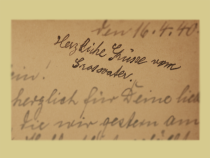 den 16.4.40.
Herzliche Grüsse vom
Grossvater.
herzlich für Deine
die mir gestern am